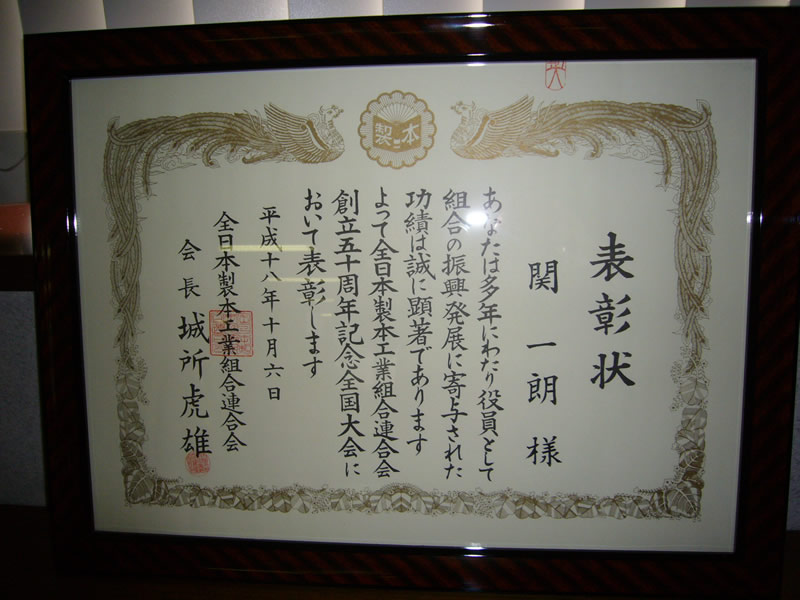 製本
表彰状
関一朗様
あなたは多年にわたり役員として
組合の振興発展に寄与された
功績は誠に顕著であります
よって全日本製本工業組合連合会
創立五十周年記念全国大会に
おいて表彰します
平成十八年十月六日
全日本製本工業組合連合会
会長 城所虎雄